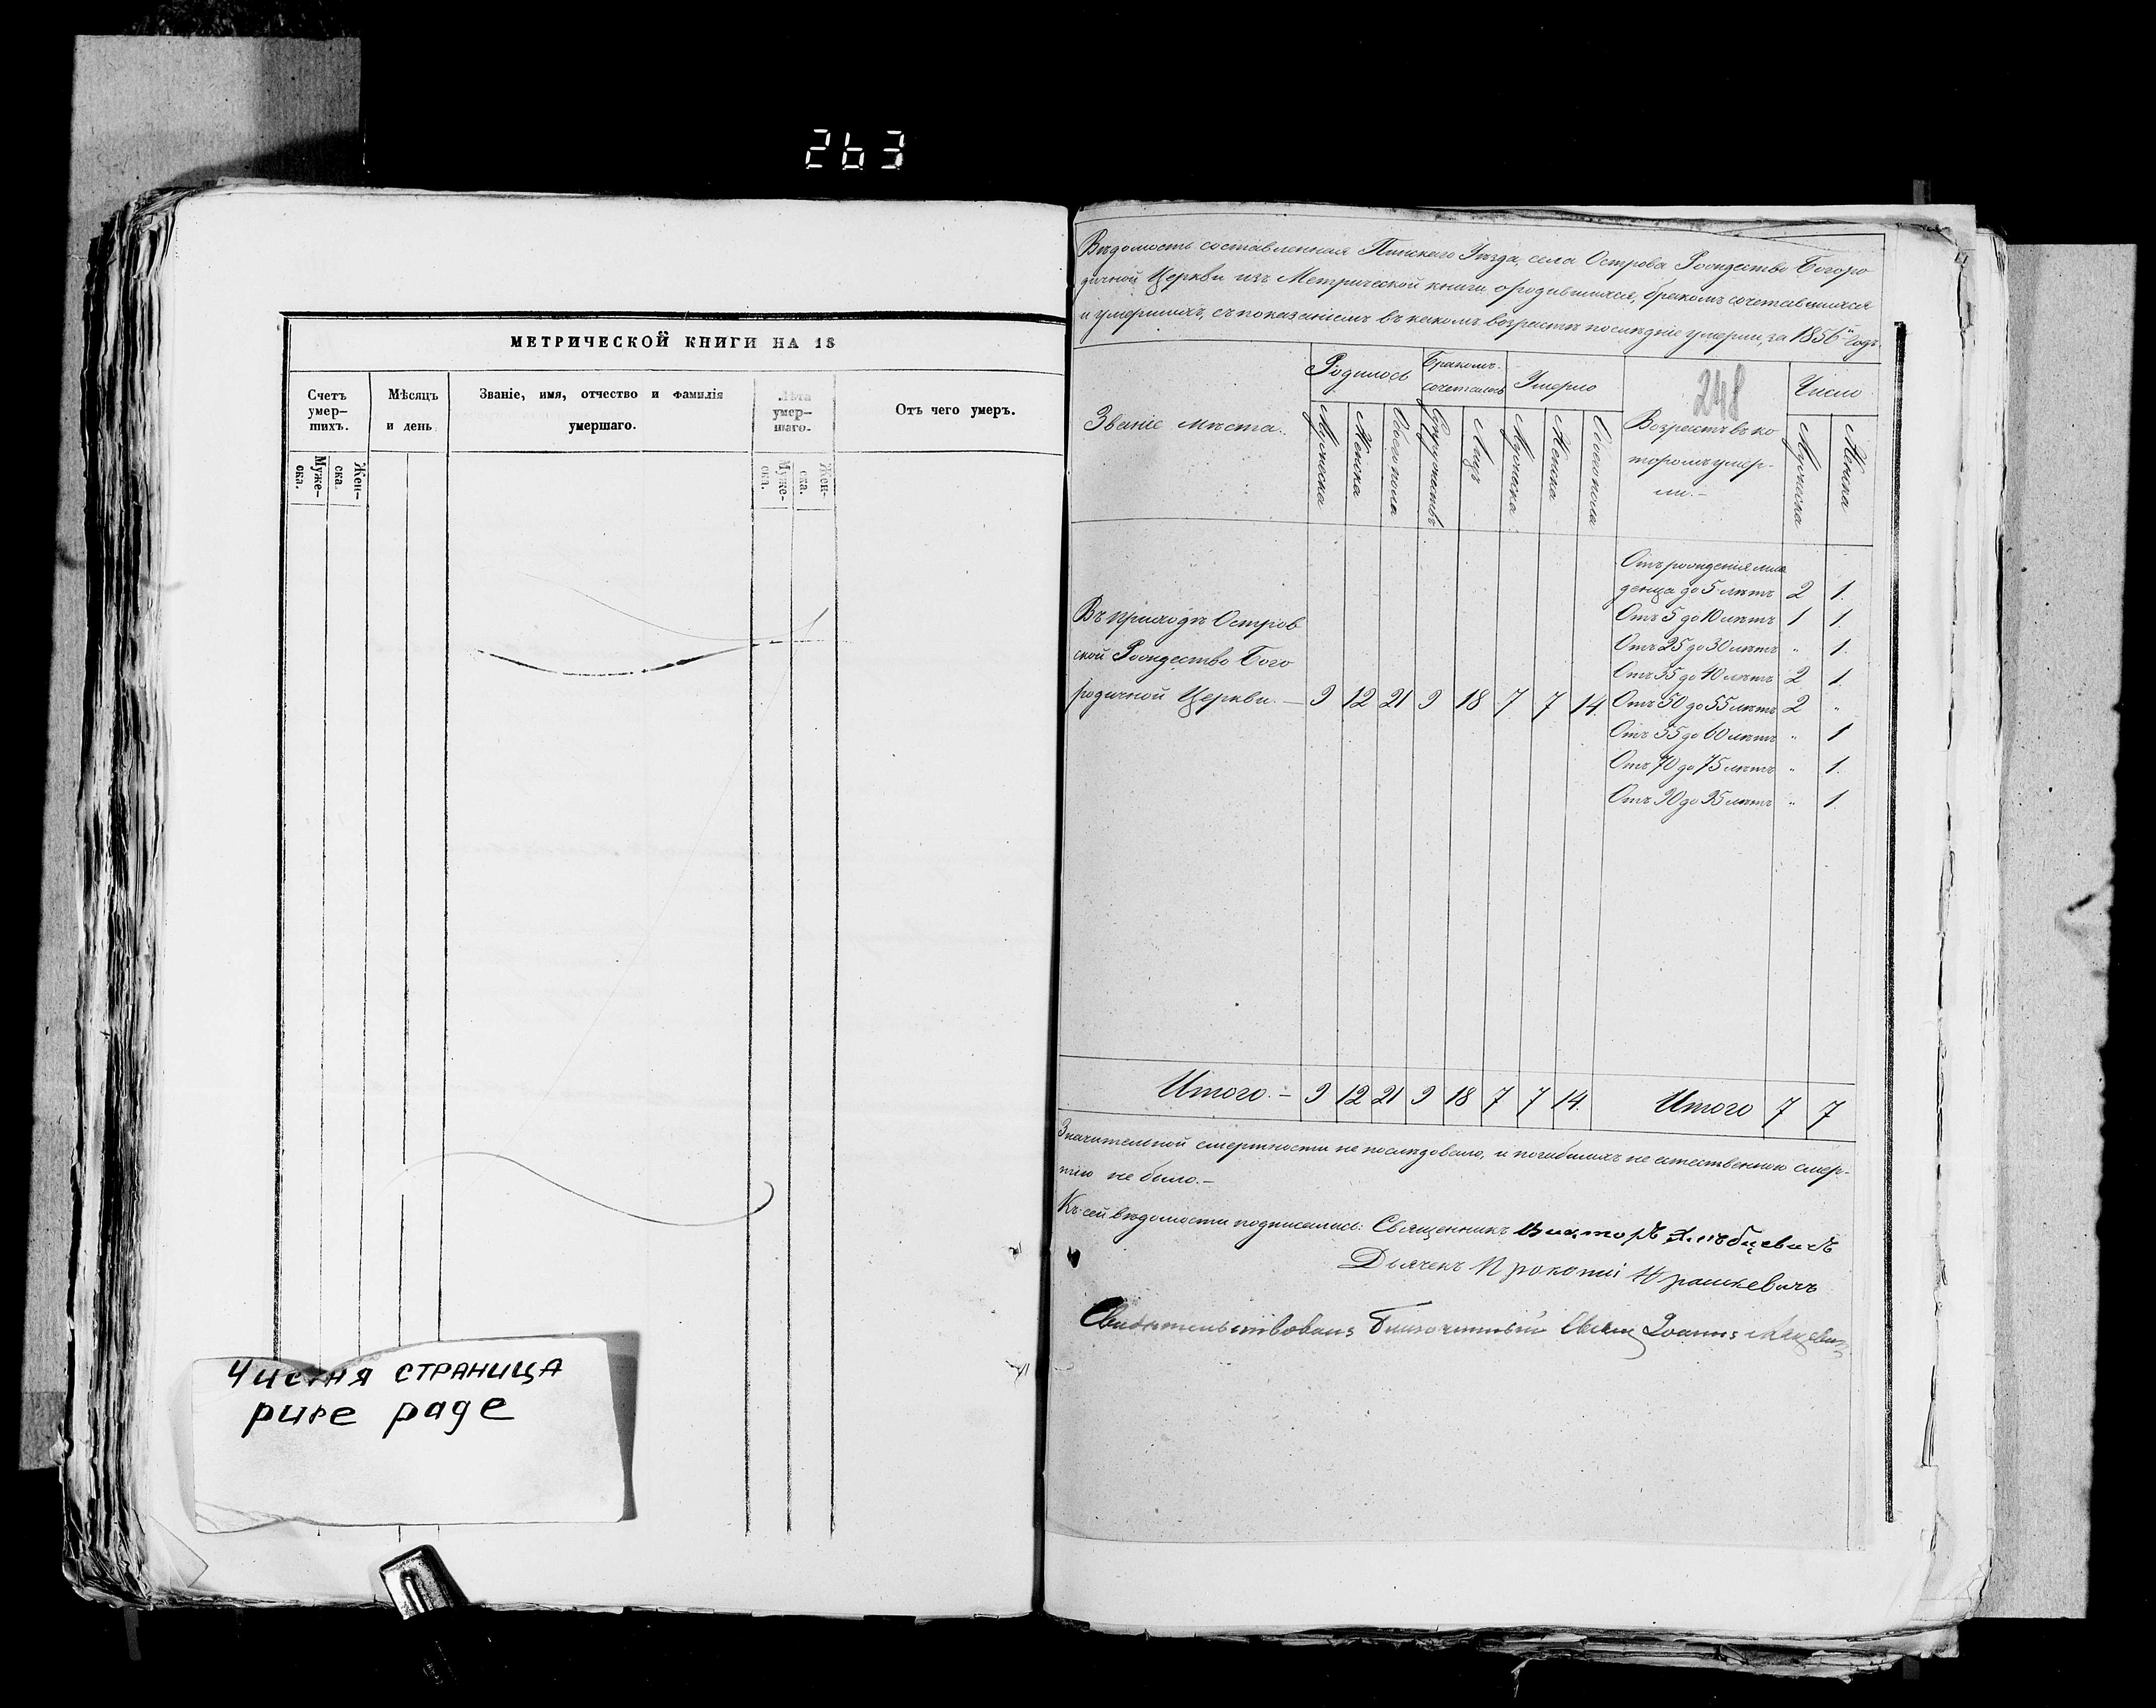 263
МЕТРИЧЕСКОЙ КНИГИ НА 18
Счетъ умер–шихъ.
Мѣсяцъ и день
Званіе, имя, отчество и фамилія умершаго.
Лѣта умер–шаго.
Отъ чего умеръ.
Муже–ска.
Жен–ска.
Муже–ска.
Жен–ска.
Чистая страница
pure page
Вѣдомость составленная Пинскаго Уѣзда, села Острова Рождество Богоро
дичной Церкви изъ Метрической книги о родившихся, бракомъ сочетавшихся
и умершихъ, съ показаніемъ въ какомъ возрастѣ послѣдніе умерли, за 1856й годъ.
248
Званіе мѣста.
Родилось
Бракомъ сочеталось
Умерло
Возрастъ въ ко
торомъ умер-
ли.–
Число
Мужеска
Женска
Обоего пола
Супружествъ
Лицъ
Мужеска
Женска
Обоего пола
Мужеска
Женска
Отъ рожденія мла
денца до 5 лѣтъ 2 1.
Отъ 5 до 10 лѣтъ 1 1.
Отъ 25 до 30 лѣтъ " 1.
Отъ 35 до 40 лѣтъ 2 1.
Отъ 50 до 55 лѣтъ 2 "
Отъ 55 до 60 лѣтъ " 1
Отъ 70 до 75 лѣтъ " 1.
Отъ 90 до 95 лѣтъ " 1.
Въ приходѣ Остров
ской Рождество Бого
родичной Церкви. – 9 12 21 9 18 7 7 14.
Итого. – 9 12 21 9 18 7 7 14. Итого 7 7
Значительной смертности не послѣдовало, и погибшихъ не естественною смер-
тію не было.–
Къ сей вѣдомости подписались: Священникъ Викторъ Хлѣбцевичъ
Дьячекъ Прокопій Юрашкевичъ
Свидѣтельствовалъ Благочинный Свящ Іоаннъ